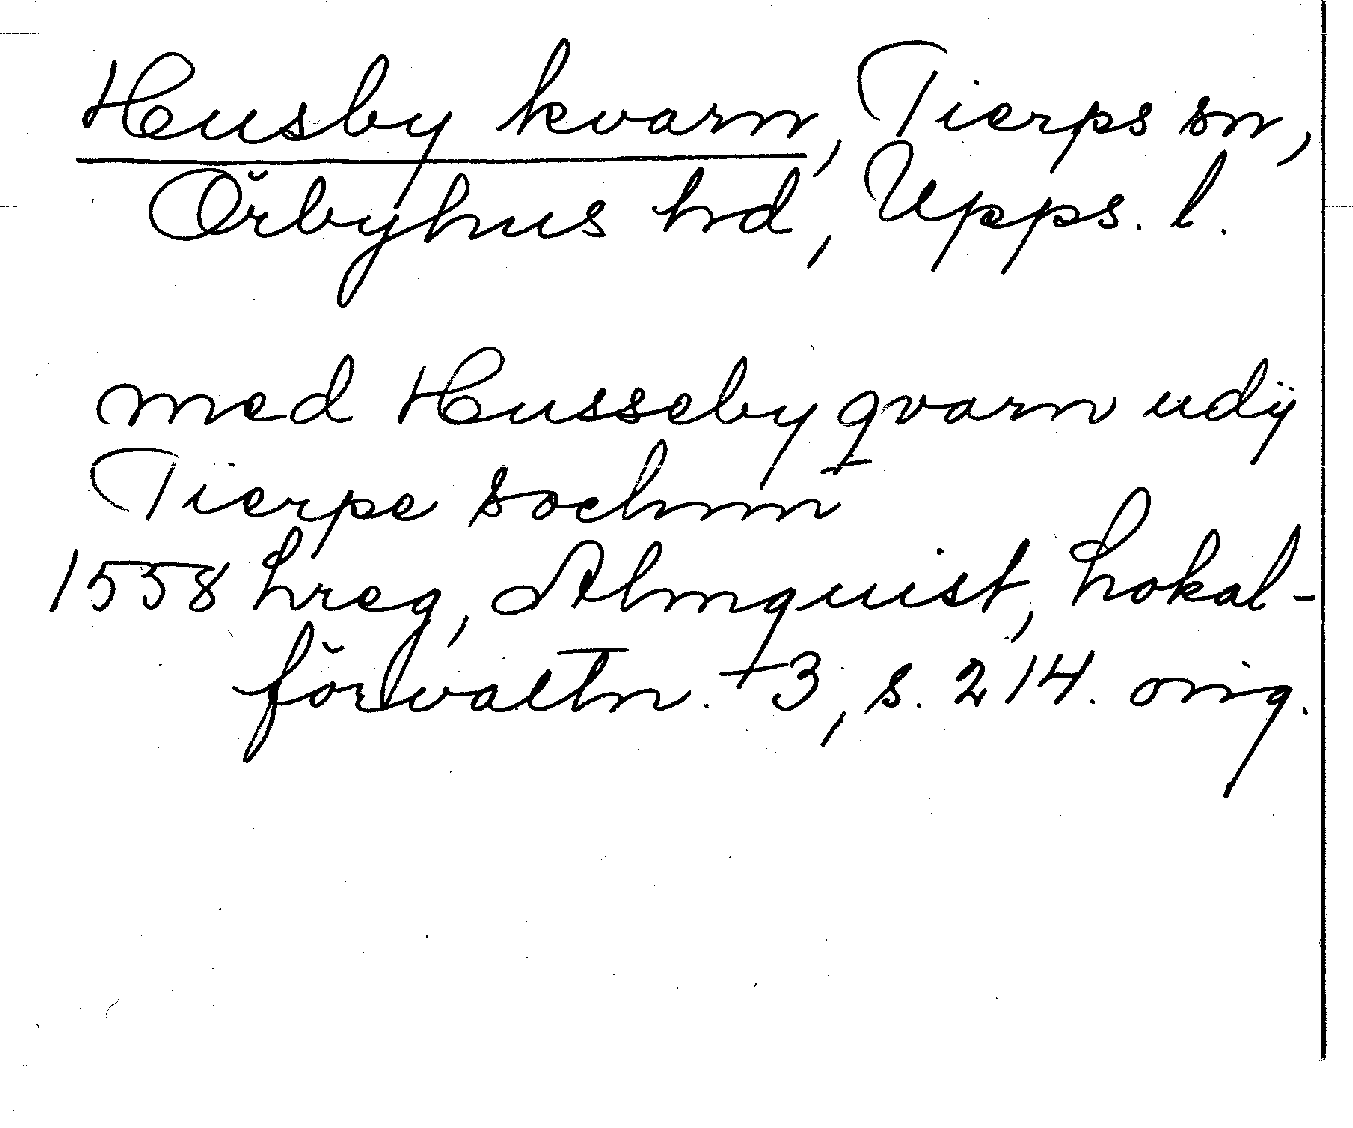 Husby kvarn, Tierps sn,
Örbyhus hd, Upps. l.
med Husseby qvarn udÿ
Tierpe sochnn
1558 hreg, Almquist, Lokal-
förvaltn. 3, s. 214. orig.